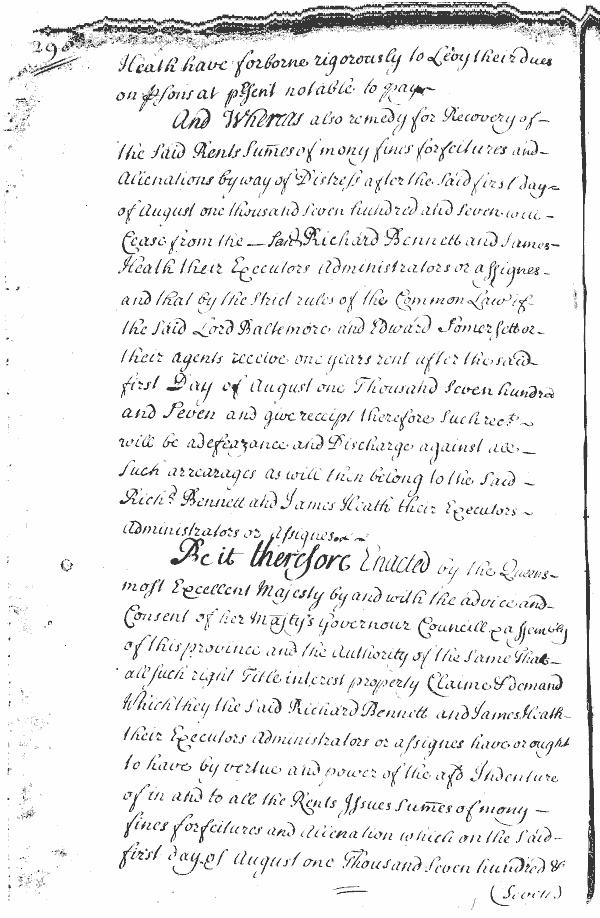 290
Heath have forborne rigorously to Levy their dues
on psons at psent not able to pay
And Whereas also remedy for Recovery of
the Said Rents Sumes of mony fines forfeitures and
Alienations by way of Distress after the Said first day
of August one thousand Seven hundred and Seven will
Cease from the Said Richard Bennett and James
Heath their Executors Administrators or assignes
and that by the Strict rules of the Common Law if
the Said Lord Baltemore and Edward Somersett or
their agents receive one years rent after the said
first Day of August one Thousand Seven hundred
and Seven and give receipt therefore Such rect
will be a defeazance and Discharge against all
Such arrearages as will then belong to the Said
Richd Bennett and James Heath their Executors
Administrators or Assignes
Be it therefore Enacted by the Queens
most Excellent Majesty by and with the advice and
Consent of her Majtys Governour Councill & assembly
of this province and the Authority of the Same That
all such right Title interest property Claime & demand
Which they the Said Richard Bennett and James Heath
their Executors Administrators or assignes have or ought
to have by vertue and power of the afd Indenture
of in and to all the Rents Issues Sumes of mony
fines forfeitures and Alienation which on the Said
first day of August one Thousand Seven hundred &
(Seven)